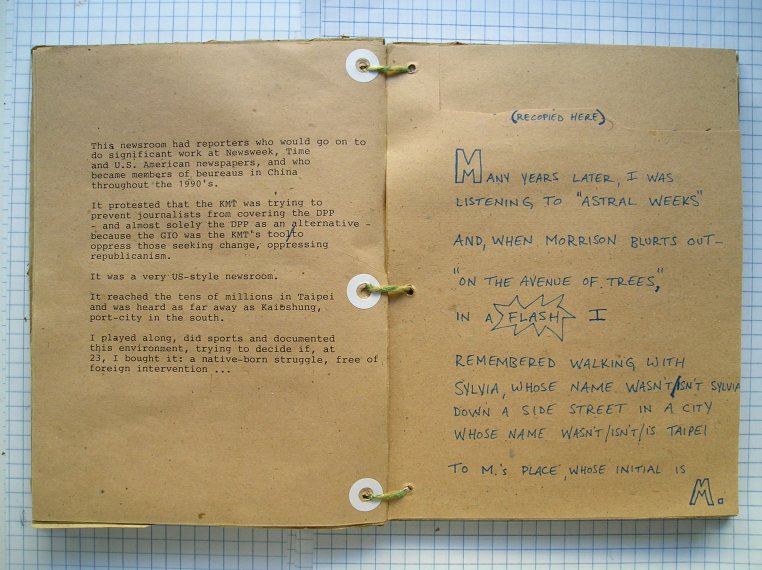 This newsroom had reporters who would go on to
do significant work at Newsweek, Time
and U.S. American newspapers, and who
became members of beureaus in China
throughout the 1990's.
It protested that the KMT was trying to
prevent journalists from covering the DPP
- and almost solely the DPP as an alternative -
because the GIO was the KMT's tool/to
oppress those seeking change, oppressing
republicanism.
It was a very US-style newsroom.
It reached the tens of millions in Taipei
and was heard as far away as Kaohshung,
port-city in the south.
I played along, did sports and documented
this environment, trying to decide if, at
23, I bought it: a native-born struggle, free of
foreign intervention ...
(RECOPIED HERE)
MANY YEARS LATER, I WAS
LISTENING TO "ASTRAL WEEKS"
AND, WHEN MORRISON BLURTS OUT—
"ON THE AVENUE OF TREES,"
IN A FLASH I
REMEMBERED WALKING WITH
SYLVIA, WHOSE NAME WASN'T/ISN'T SYLVIA
DOWN A SIDE STREET IN A CITY
WHOSE NAME WASN'T/ISN'T/IS TAIPEI
TO M.'S PLACE, WHOSE INITIAL IS
M.